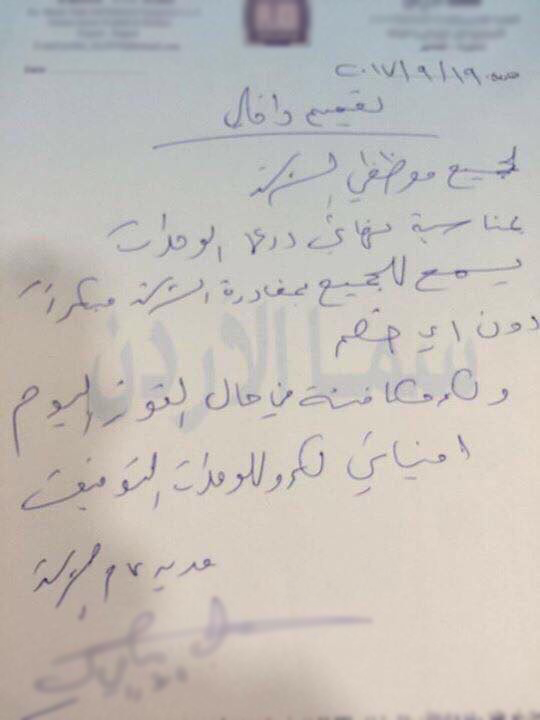 ٢٠١٧/٩/١٩
تعميم داخلي
لجميع موظفي الشركة
بمناسبة نهائي درع الوحدات
يسمح للجميع بمغادرة الشركة مبكراً
دون اي خصم
ولكم مكافئة في حال الفوز اليوم
امنياتي لكم وللوحدات التوفيق
مدير عام الشركة
سما الاردن